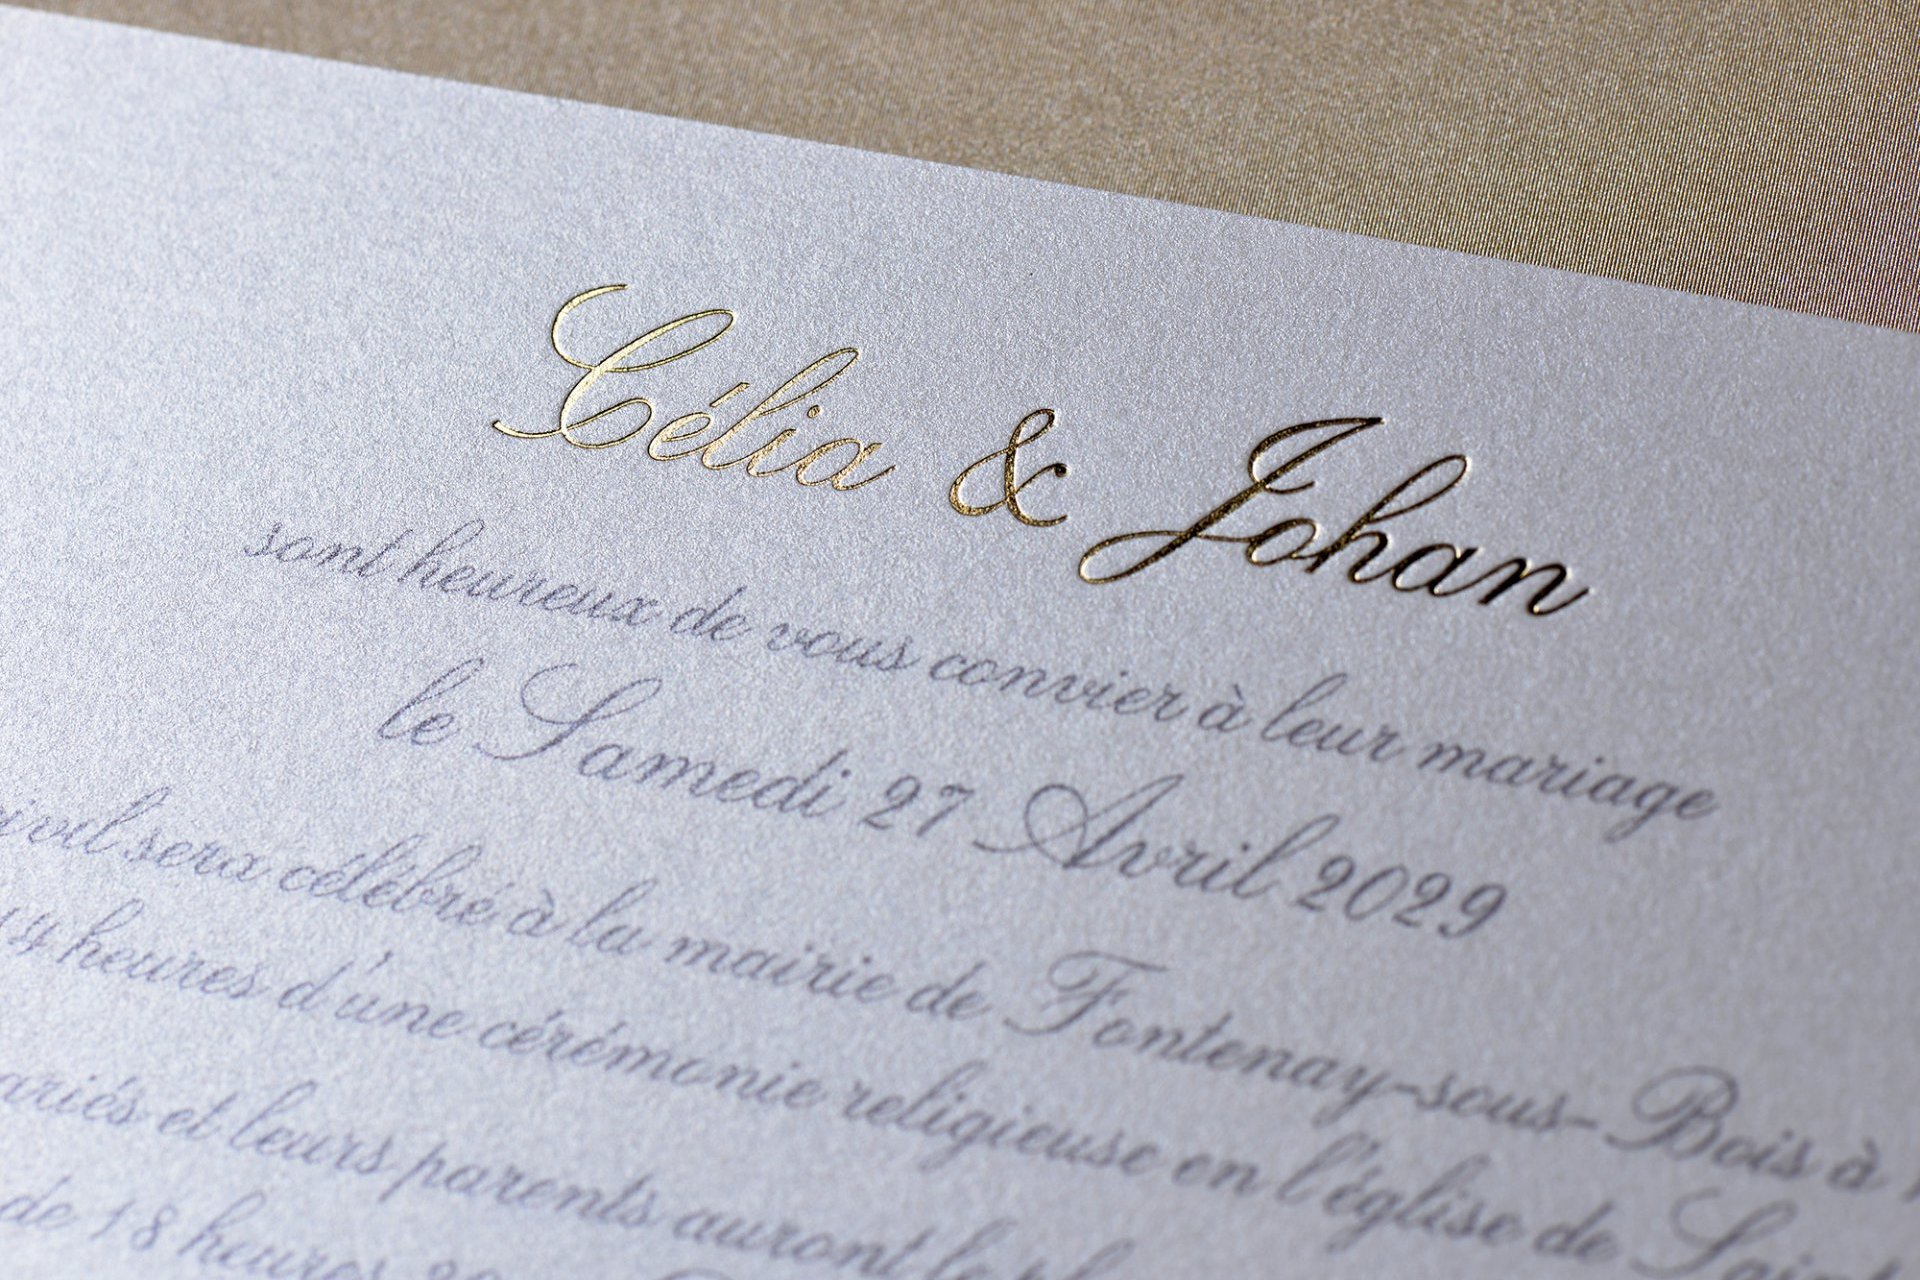 Célia & Johan
sont heureux de vous convier à leur mariage
le Samedi 27 Avril 2029
sera célébré à la mairie de Fontenay-sous-Bois à
heures d'une cérémonie religieuse en l'église de
et leurs parents auront
de 18 heures